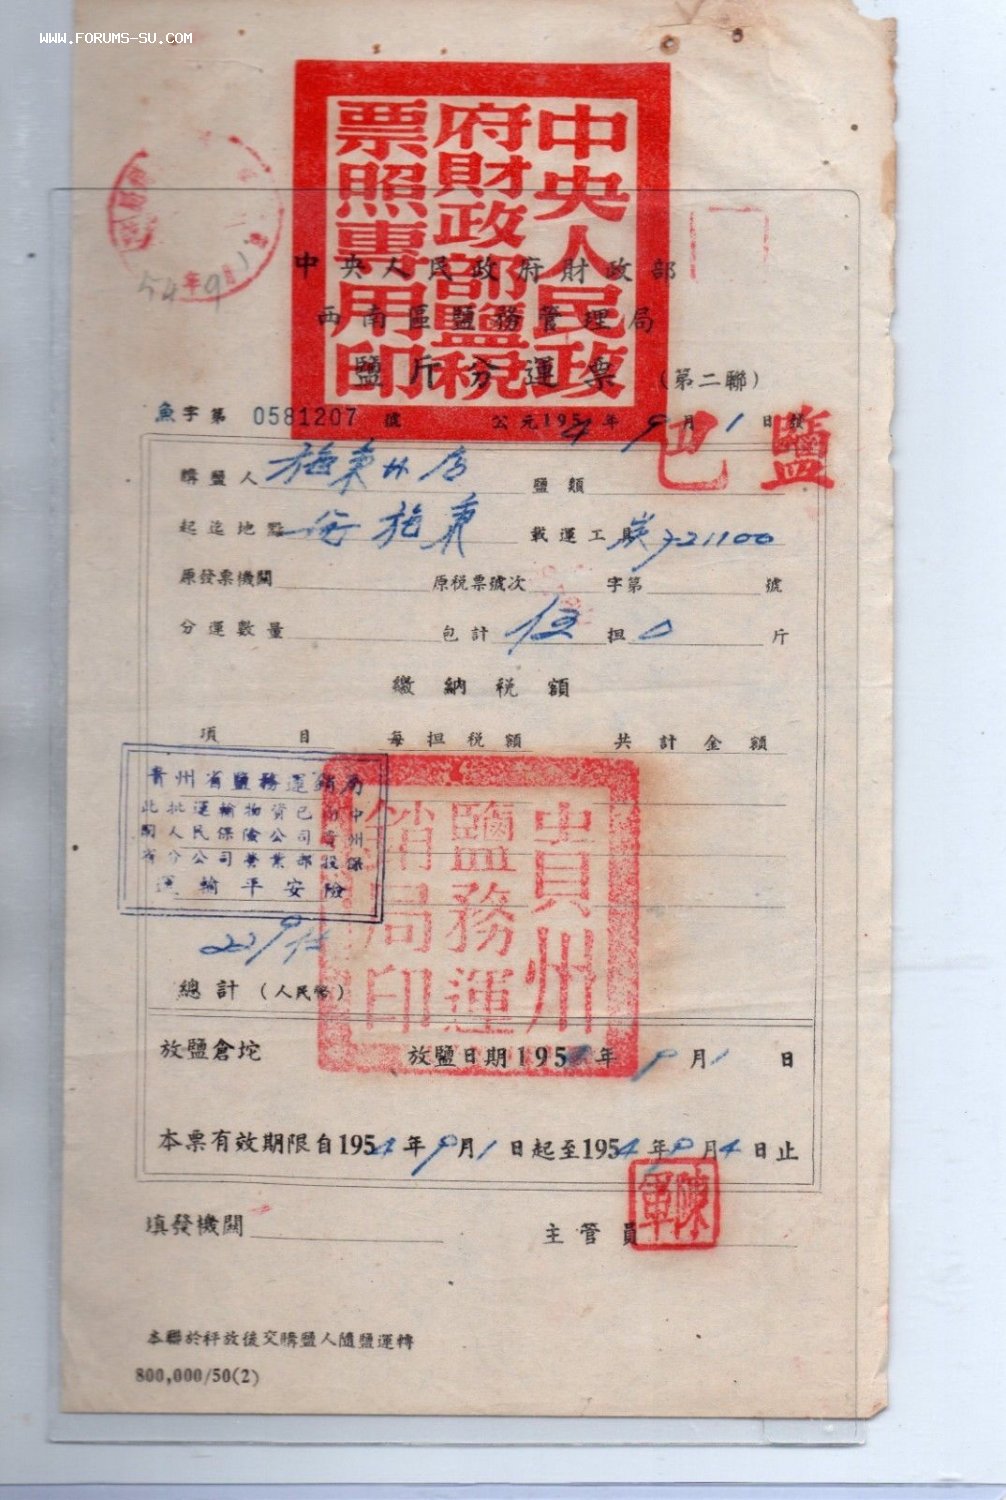 WWW.FORUMS-SU.COM
中央人民政
府財政部鹽税
票照專用印
中央人民政府財政部
西南區鹽務管理局
鹽斤分運票
(第二聯)
54年9月1
魚字第 0581207 號 公元1954年9月1日發
鹽 已
購鹽人 施秉 店 鹽類
起迄地點 施秉 載運工具 21100
原發票機關 原税票號次 字第 號
分運數量 包計 伍担0斤
繳納税額
項目 每担税額 共計金額
貴州省鹽務運銷局
此批運輸物資已向中
國人民保險公司貴州
省分公司營業部投保
運輸平安險
貴州
鹽務運
銷局印
總計(人民幣)
放鹽倉坨 放鹽日期195 年9月1日
本票有效期限自1954年9月1日起至1954年9月4日止
填發機關 主管員
陳軍
本聯於秤放後交購鹽人隨鹽運轉
800,000/50(2)